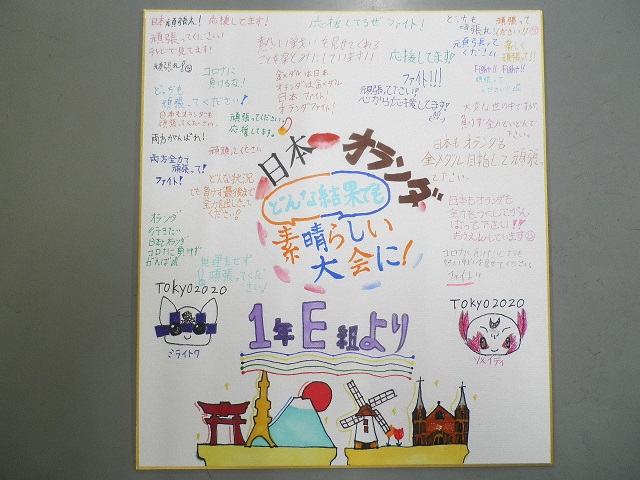 日本頑張太!
応援してます!
頑張ってください!
テレビで見てます!
頑張れ!
コロナに
負けるな!
どっちも
頑張ってください!
日本もオランダも
頑張ってください。
両方がんばれ!
両方全力で
頑張って!
ファイト!
応援してるぜ ファイト!
熱い戦いを見せてくれる
ことをたのしみにしています!!
金メダルは日本
オランダは金メダル
日本ファイト!
オランダファイト!
応援してます!
ファイト!!!
頑張って下さい!
心から応援してます!
頑張ってください
応援してます。
頑張ってください
どっちも
頑張れ!
頑張って
ください!!
元気張って
ください
楽しく
頑張って!!
Fight!! Fight!!
頑張って
ください
大変な世の中ですが、
負けず全力でがんばって
下さい。
日本もオランダも
金メダル目指して頑張っ
て下さい。
どんな状況
でも負けず最後まで
全力出しきって
ください!
日本もオランダも
全力をつくしてがん
ばって下さい!
おうえんしています
オランダ
日本とオランダ
コロナに負けず
がんばれ
無理をせず
頑張ってくだ
さい!
ファイト!!
日本 オランダ
どんな結果でも
素晴らしい
大会に!
TOKYO2020
ミライトワ
TOKYO2020
ソメイティ
1年E組より